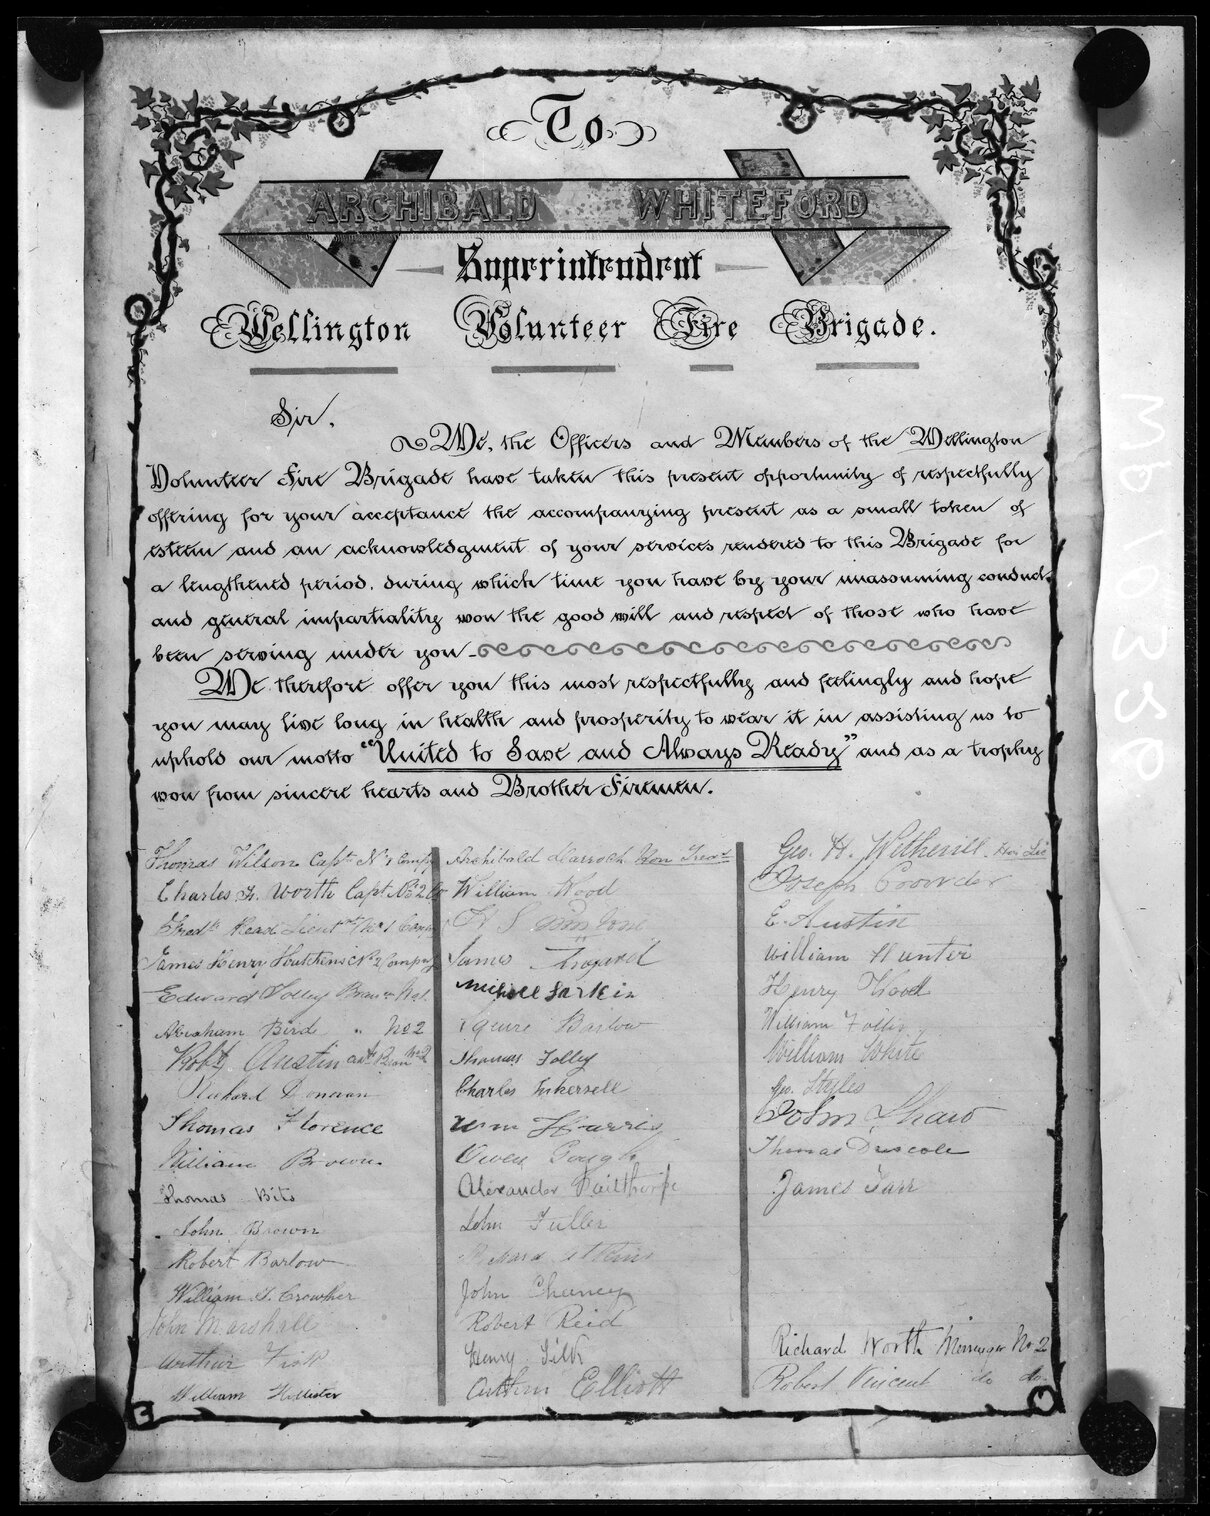 To
ARCHIBALD WHITEFORD
Superintendent
Wellington Volunteer Fire Brigade.
Sir,
We, the Officers and Members of the Wellington
Volunteer Fire Brigade have taken this present opportunity of respectfully
offering for your acceptance the accompanying present as a small token of
esteem and an acknowledgment of your services rendered to this Brigade for
a lengthened period, during which time you have by your unassuming conduct
and general impartiality won the good will and respect of those who have
been serving under you
We therefore offer you this most respectfully and feelingly and hope
you may live long in health and prosperity to wear it in assisting us to
uphold our motto "United to Save and Always Ready" and as a trophy
won from sincere hearts and Brother Firemen.
Thomas Wilson Capt. No 1 Compy
Charles F. Worth Capt. No 2 Co
Fredk Head Lieutnt No 1 Compy
James Henry Hutchens No 2 Company
Edward Tolley Branch No 1.
Abraham Bird " No 2
Robt Austin No 2
Richard Donovan
Thomas Florence
William Brown
Thomas Bits
John Brown
Robert Barlow
William T. Crowther
John Marshall
Arthur Fisk
William Hollister
Archibald Darroch Hon Trear
William Wood
James
Michell Larkin
Squire Barlow
Thomas Tolley
Charles Inkersell
Wm Harris
Owen Gough
Alexander Pailthorpe
John Fuller
John Cheeney
Robert Reid
Henry Silk
Arthur Elliott
Geo. H. Wilherill. Hon Sec
Joseph
E. Austin
William Hunter
Henry Wood
William
William White
Geo. Styles
John Shaw
Thomas Driscole
James Tarr
Richard Worth Messenger No 2
Robert Vincent do do.